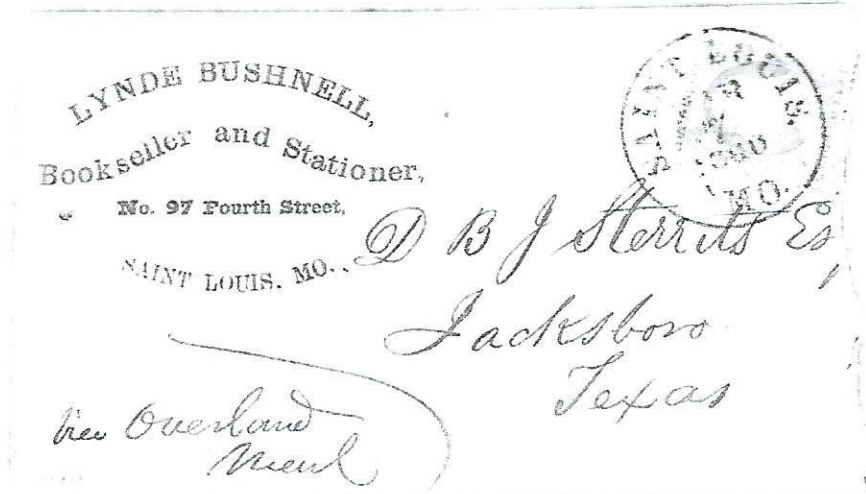 LYNDE BUSHNELL,
Bookseller and Stationer,
No. 97 Fourth Street,
SAINT LOUIS, MO.
SAINT LOUIS.
1860
MO.
D B J Sterrits Es
Jacksboro
Texas
via Overland
Mail